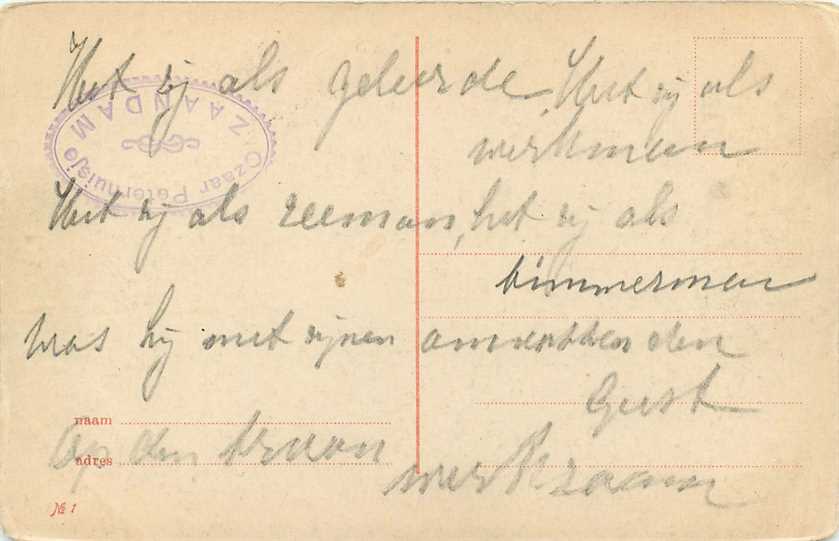 Het zij als geleerde, Het zij als
werkman
Het zij als zeeman, het zij als
timmerman
was hij met zijnen omvattenden
Geest
op den troon
werkzaam
naam
adres
№ 1
Czaar Peterhuisje
ZAANDAM